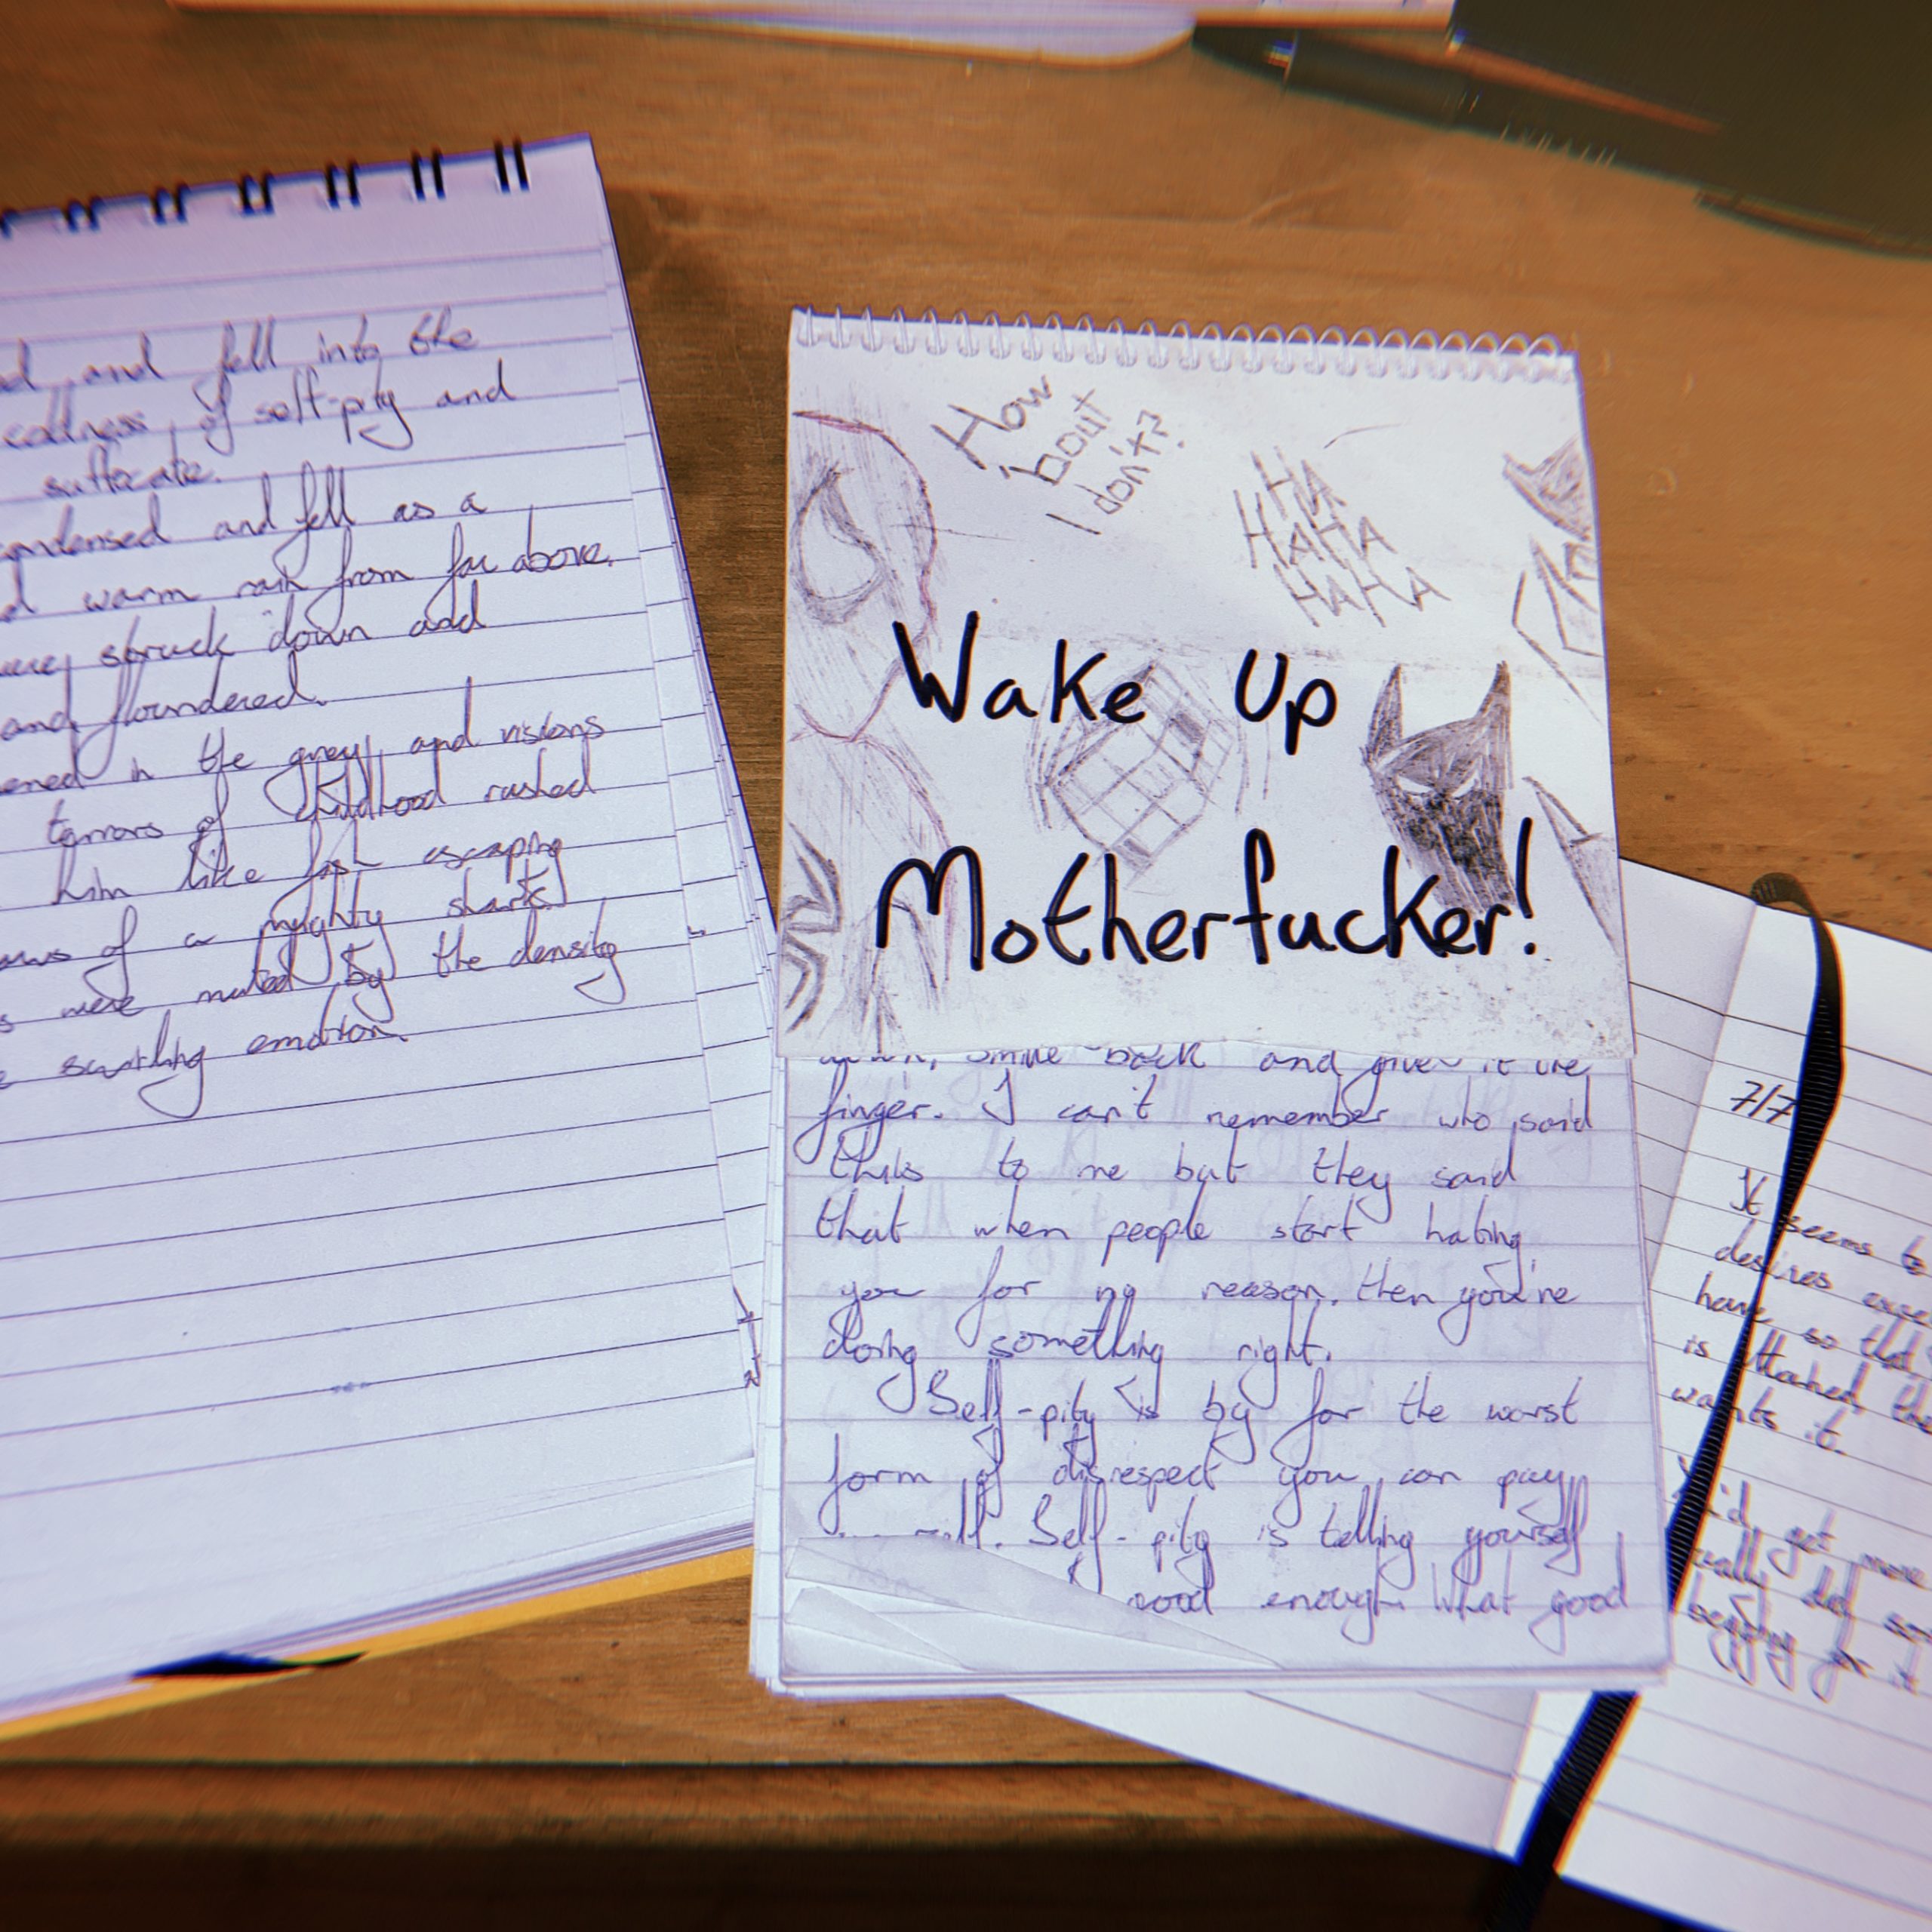 and fell into the
of self-pity and
suffocate.
condensed and fell as a
warm rain from far above.
were struck down and
and floundered.
in the grey and visions
terrors of childhood rushed
him like fish escaping
of a mighty shark.
were muted by the density
swirling emotion.
How
'bout
I don't?
HA
HAHA
HAHA
Wake Up
Motherfucker!
smile back and give it the
finger. I can't remember who said
this to me but they said
that when people start hating
you for no reason, then you're
doing something right.
Self-pity is by far the worst
form of disrespect you can pay
Self-pity is telling yourself
good enough. What good
7/7
It seems to
desires
have so that
is attached the
wants it.
get more
really
begging for it